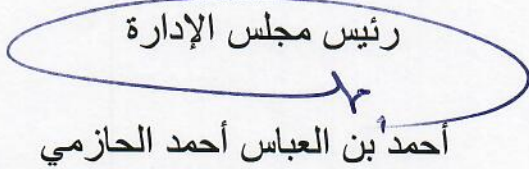 رئيس مجلس الإدارة
أحمد بن العباس أحمد الحازمي